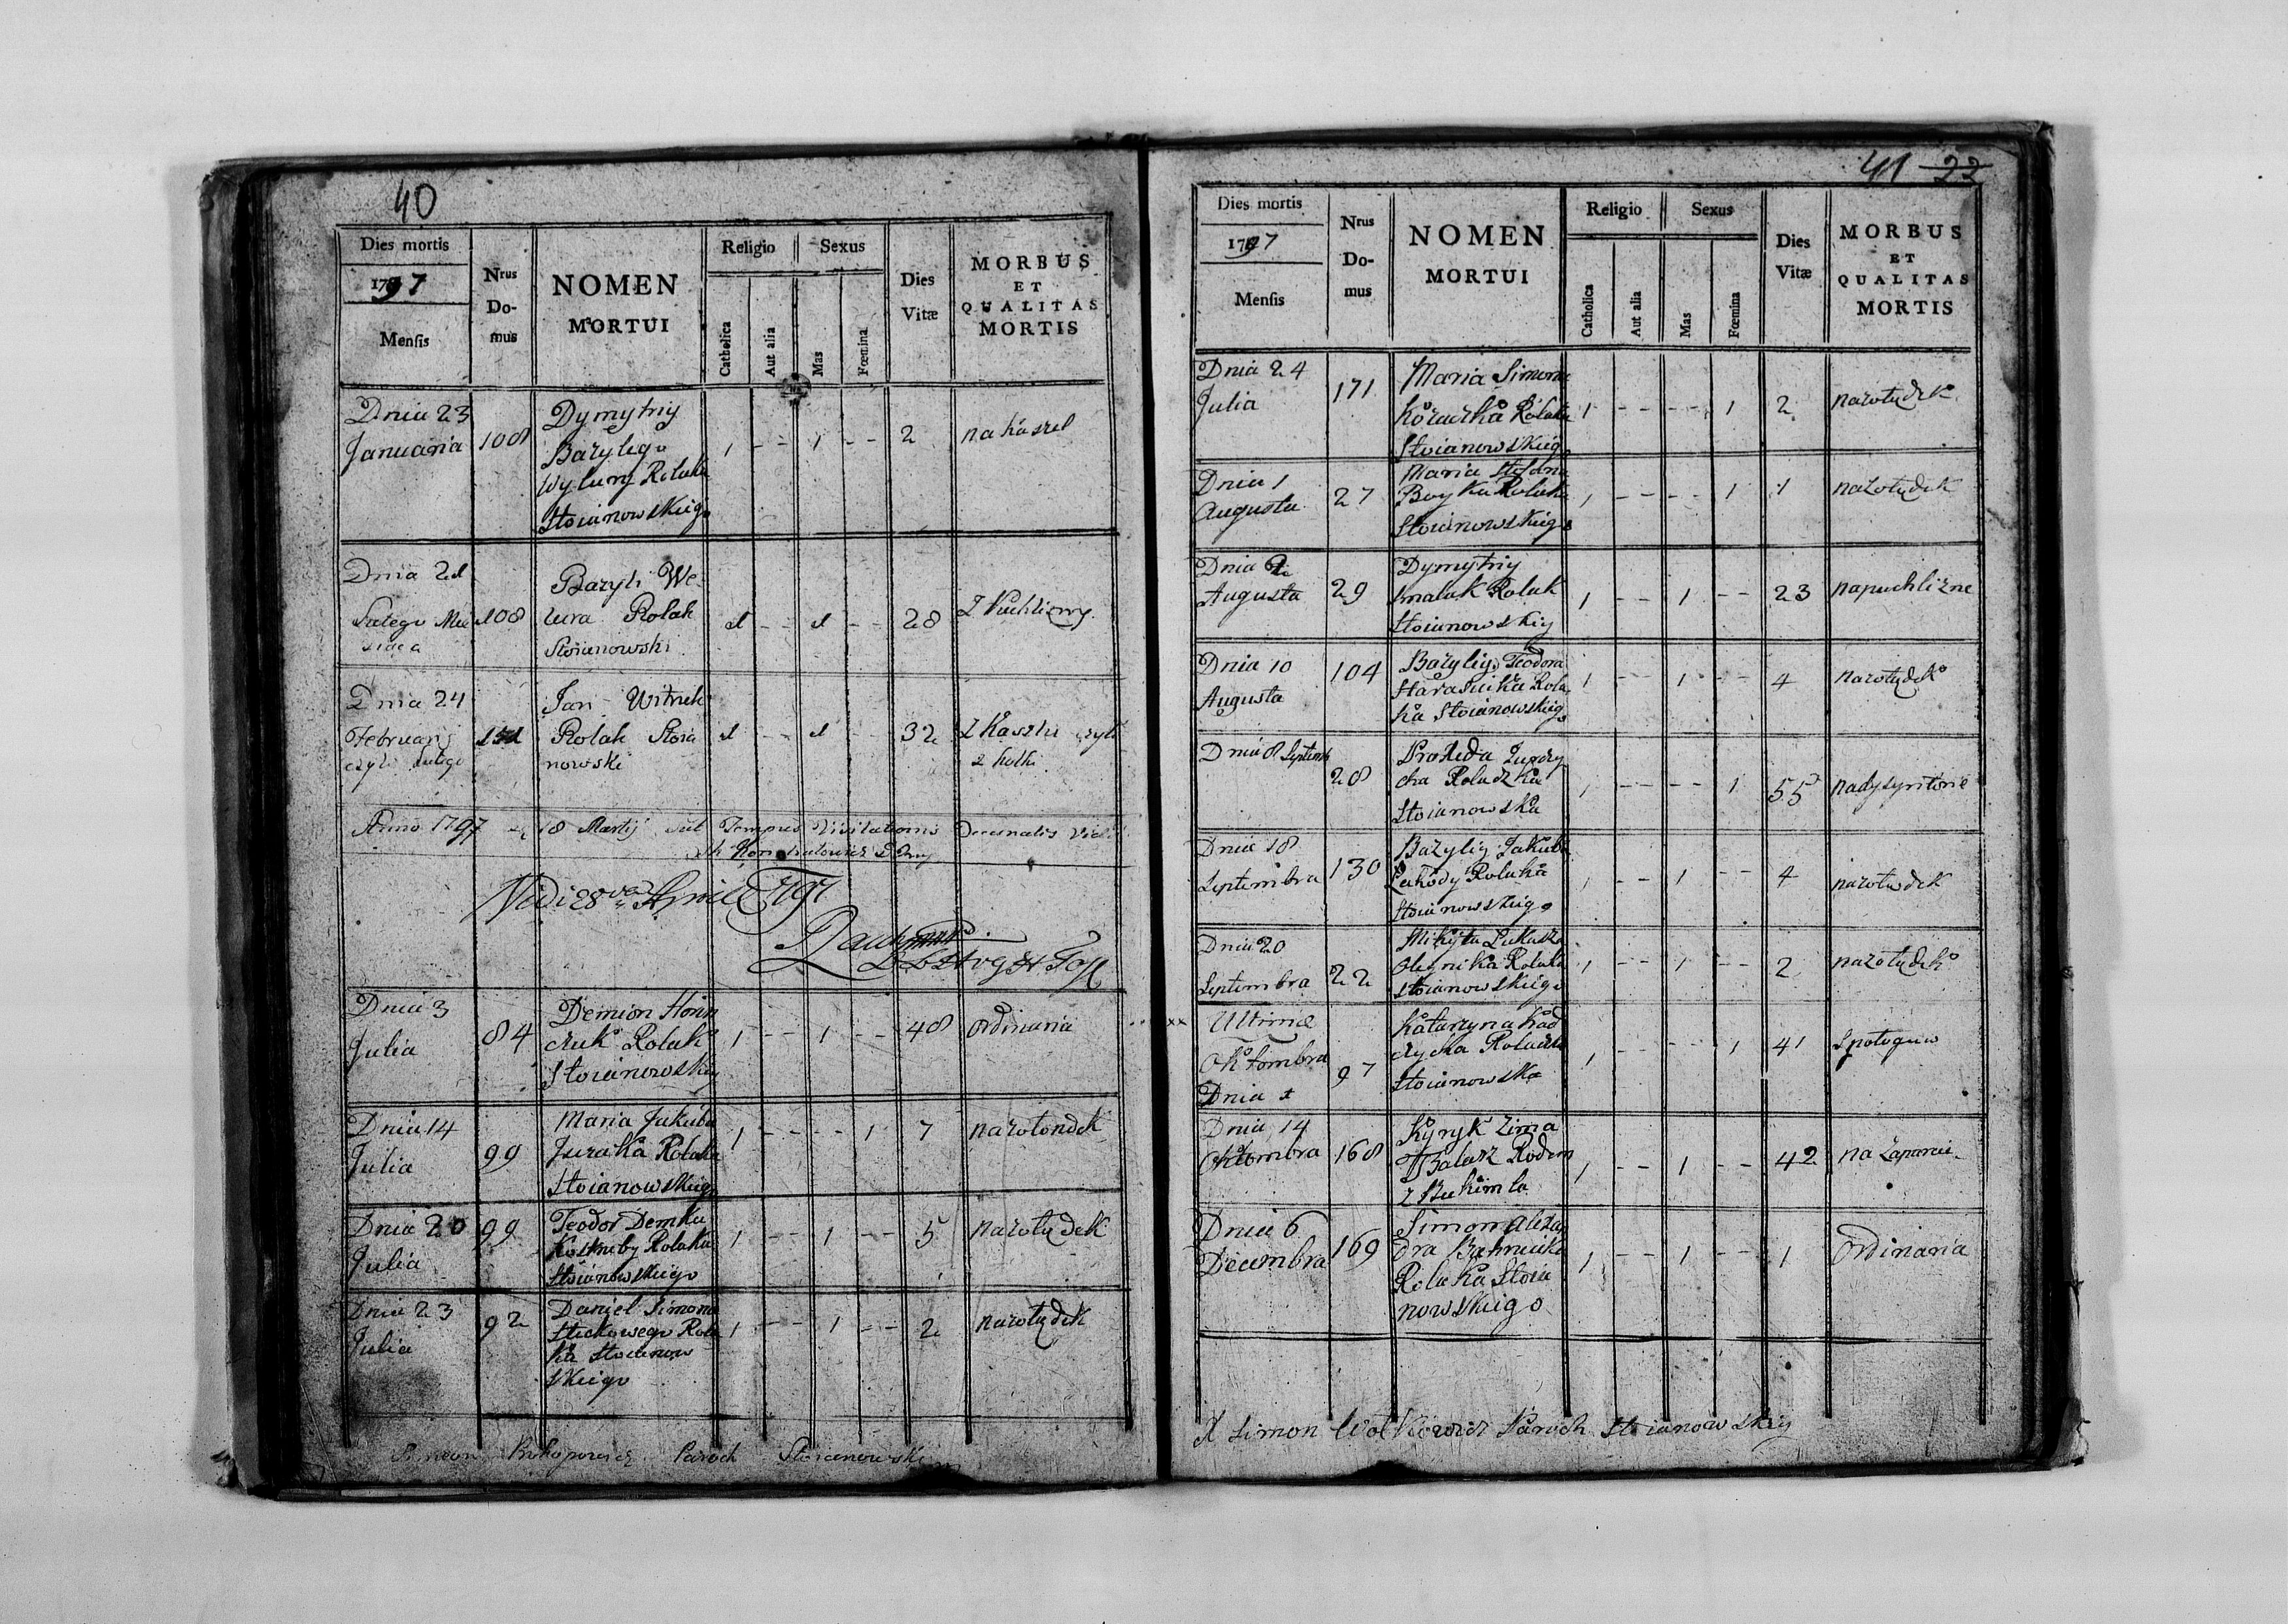 40
Dies mortis
1797
Mensis
Nrus
Do-
mus
NOMEN
MORTUI
Religio
Catholica
Aut alia
Sexus
Mas
Fœmina
Dies
Vitæ
MORBUS
ET
QUALITAS
MORTIS
Dnia 23
Januaria
108
Dymytriy
Bazylego
Rolaka
Stoianowskiego
1 - - 1 - - 2
na kaszel
Dnia 21
Lutego Mie
siąca
108
Bazyli We
lura Rolak
Stoianowski
1 - - 1 - - 28
Z Puchlizny
Dnia 24
Februarij
czyli Lutego
151
Jan
Rolak Stoia
nowski
1 - - 1 - - 32
Z Kaszlu czyli
z kolki
Anno 1797 18 Martij sub Tempus Visitationis Decanalis
Vidi 28va April 1797
Dnia 3
Julia
84
Demian
czuk Rolak
Stoianowskiy
1 - - 1 - - 48
Ordinaria
Dnia 14
Julia
99
Maria Jakuba
Juraka Rolaka
Stoianowskiego
1 - - - - 1 7
nazolondek
Dnia 20
Julia
99
Teodor Demka
Rolaka
Stoianowskiego
1 - - 1 - - 5
nazolądek
Dnia 23
Julia
92
Daniel Simona
Steckowego Rola
ka Stoianow
skiego
1 - - 1 - - 2
nazolądek
Simeon Prokopowicz Paroch Stoianowski
41 22
Dies mortis
1797
Mensis
Nrus
Do-
mus
NOMEN
MORTUI
Religio
Catholica
Aut alia
Sexus
Mas
Fœmina
Dies
Vitæ
MORBUS
ET
QUALITAS
MORTIS
Dnia 24
Julia
171
Maria Simona
Rolaka
Stoianowskiego
1 - - - - 1 2
nazolądek
Dnia 1
Augusta
27
Maria Stefana
Boyka Rolaka
Stoianowskiego
1 - - - - 1 1
nazolądek
Dnia 2
Augusta
29
Dymytriy
Smaluk Rolak
Stoianowskiy
1 - - 1 - - 23
napuchlizne
Dnia 10
Augusta
104
Bazyliy Teodora
Rola
ka Stoianowskiego
1 - - 1 - - 4
nazolądek
Dnia 8 Septemb
28
cha Rolaczka
Stoianowska
1 - - - - 1 55
nadysyntorie
Dnia 18
Septembra
130
Bazyliy Jakuba
Rolaka
Stoianowskiego
1 - - 1 - - 4
nazolądek
Dnia 20
Septembra
22
Mikyta Lukasza
Oleynika Rolaka
Stoianowskiego
1 - - 1 - - 2
nazolądek
Ultima
Oktombra
Dnia
97
Katarzyna Kad
Rolaczka
Stoianowska
1 - - - - 1 41
Spologuw
Dnia 14
Oktombra
168
Kyryk Zima
Rodem
z
1 - - 1 - - 42
na Zaparcie
Dnia 6
Decembra
169
Simon Alexan
dra
Rolaka Stoia
nowskiego
1 - - 1 - - 1
Ordinaria
X Simon Wolkowicz Paroch Stoianowskiy